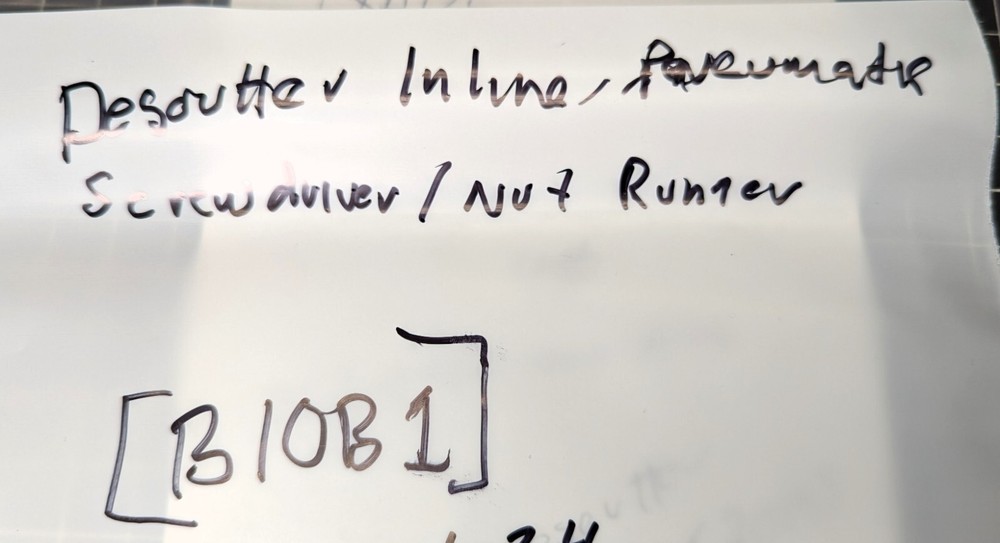 Desoutter Inline, Pneumatic
Screwdriver / Nut Runner
[B10B1]